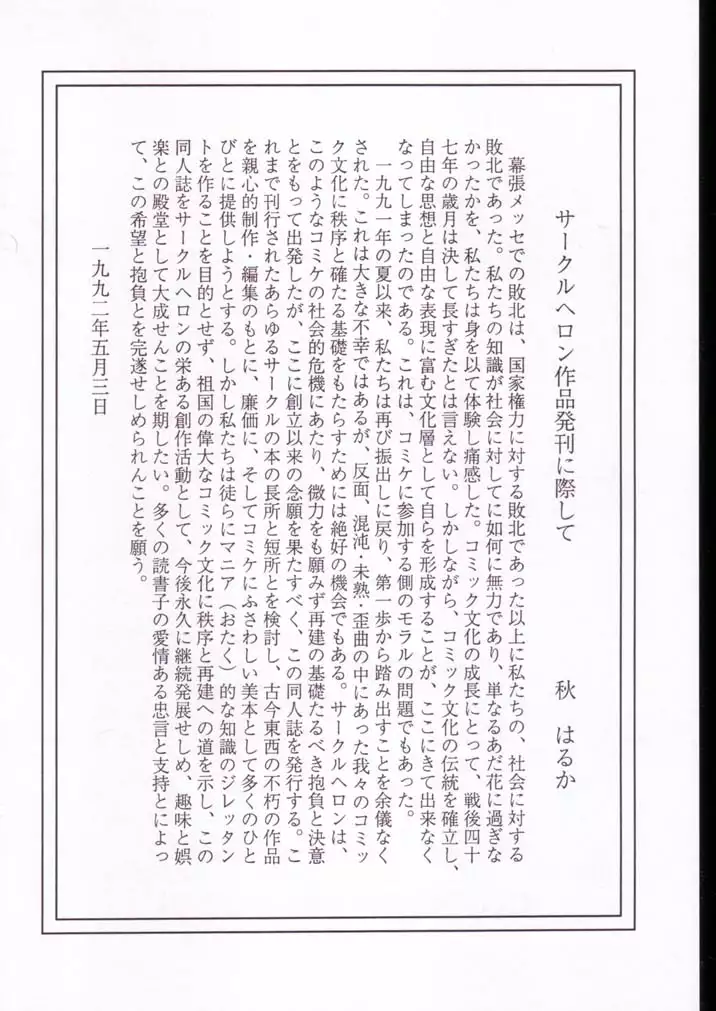 サークルヘロン作品発刊に際して
秋 はるか
幕張メッセでの敗北は、国家権力に対する敗北であった以上に私たちの、社会に対する
敗北であった。私たちの知識が社会に対してに如何に無力であり、単なるあだ花に過ぎな
かったかを、私たちは身を以て体験し痛感した。コミック文化の成長にとって、戦後四十
七年の歳月は決して長すぎたとは言えない。しかしながら、コミック文化の伝統を確立し、
自由な思想と自由な表現に富む文化層として自らを形成することが、ここにきて出来なく
なってしまったのである。これは、コミケに参加する側のモラルの問題でもあった。
一九九一年の夏以来、私たちは再び振出しに戻り、第一歩から踏み出すことを余儀なく
された。これは大きな不幸ではあるが、反面、混沌・未熟・歪曲の中にあった我々のコミッ
ク文化に秩序と確たる基礎をもたらすためには絶好の機会でもある。サークルヘロンは、
このようなコミケの社会的危機にあたり、微力をも願みず再建の基礎たるべき抱負と決意
とをもって出発したが、ここに創立以来の念願を果たすべく、この同人誌を発行する。こ
れまで刊行されたあらゆるサークルの本の長所と短所とを検討し、古今東西の不朽の作品
を親心的制作・編集のもとに、廉価に、そしてコミケにふさわしい美本として多くのひと
びとに提供しようとする。しかし私たちは徒らにマニア（おたく）的な知識のジレッタン
トを作ることを目的とせず、祖国の偉大なコミック文化に秩序と再建への道を示し、この
同人誌をサークルヘロンの栄ある創作活動として、今後永久に継続発展せしめ、趣味と娯
楽との殿堂として大成せんことを期したい。多くの読書子の愛情ある忠言と支持とによっ
て、この希望と抱負とを完遂せしめられんことを願う。
一九九二年五月三日